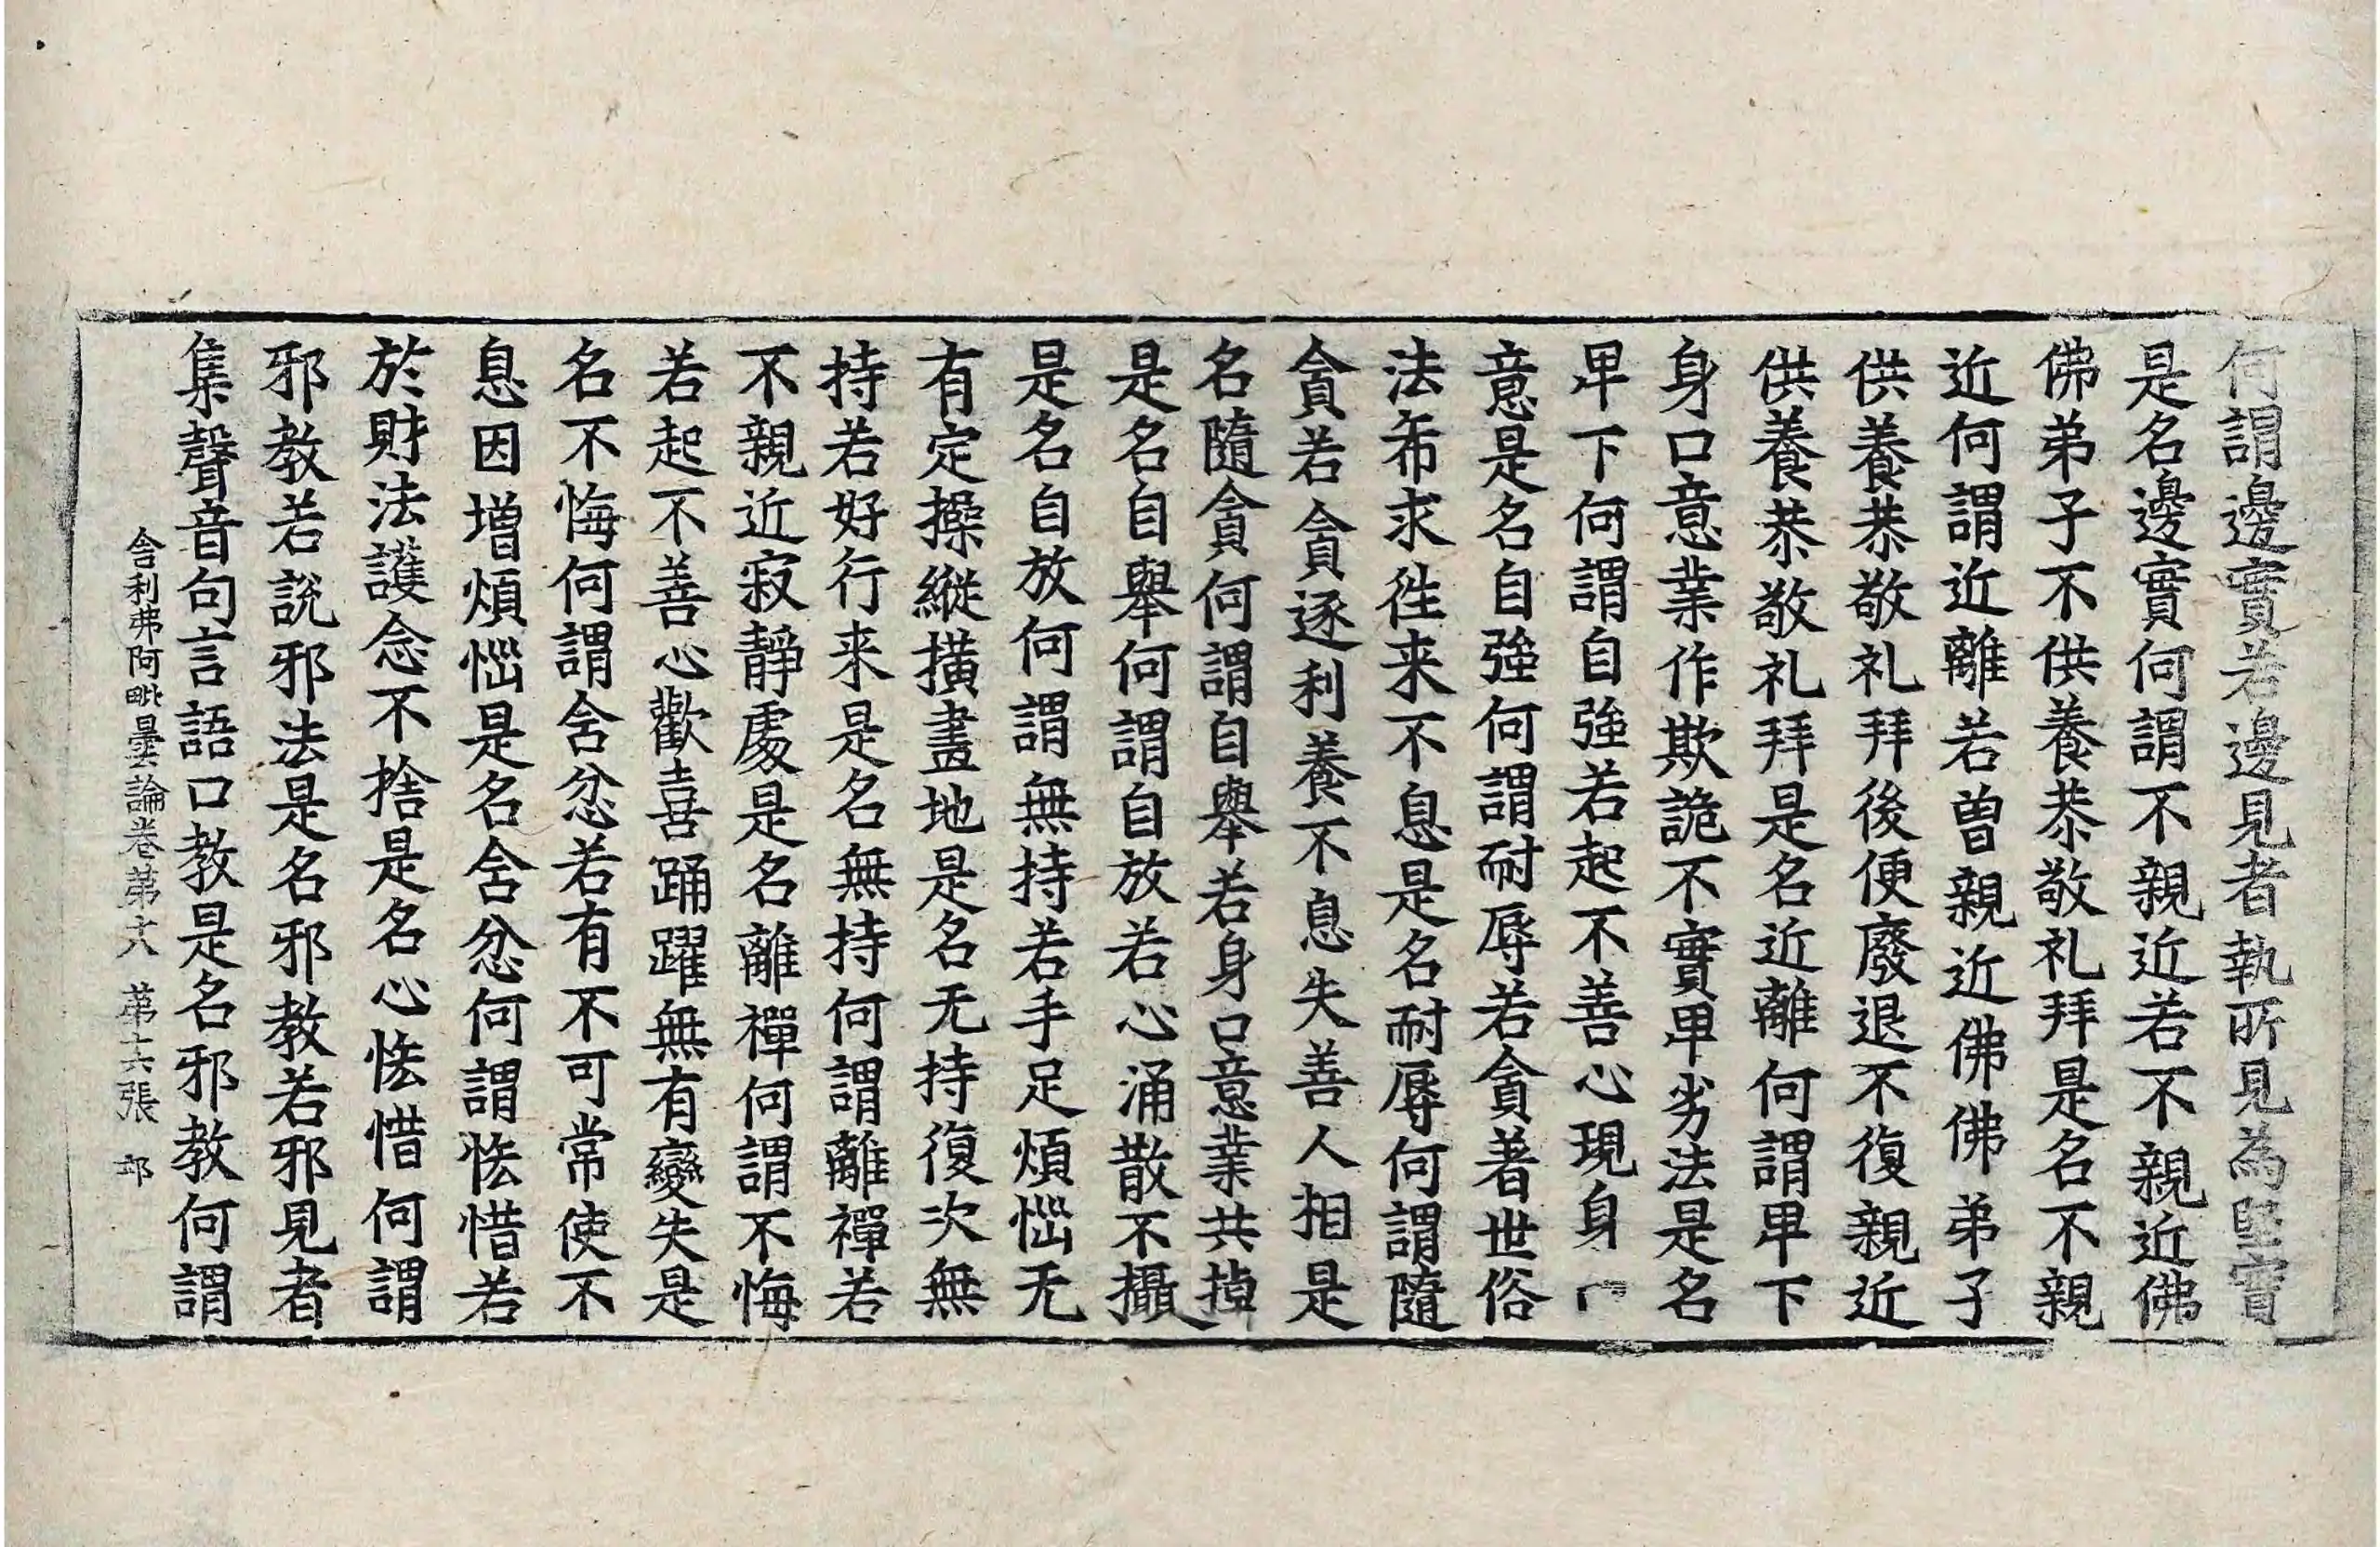 何謂邊實若邊見者執所見為堅實
是名邊實何謂不親近若不親近佛
佛弟子不供養恭敬礼拜是名不親
近何謂近離若曾親近佛佛弟子
供養恭敬礼拜後便廢退不復親近
供養恭敬礼拜是名近離何謂卑下
身口意業作欺詭不實卑劣法是名
卑下何謂自強若起不善心現身
意是名自強何謂耐辱若貪著世俗
法布求徃来不息是名耐辱何謂隨
貪若貪逐利養不息失善人相是
名隨貪何謂自舉若身口意業共掉
是名自舉何謂自放若心涌散不攝
是名自放何謂無持若手足煩惱无
有定操縱撗畫地是名无持復次無
持若好行来是名無持何謂離禪若
不親近寂靜處是名離禪何謂不悔
若起不善心歡喜踊躍無有變失是
名不悔何謂舍忿若有不可常使不
息因増煩惱是名舍忿何謂恡惜若
於財法護念不捨是名心恡惜何謂
邪教若說邪法是名邪教若邪見者
集聲音句言語口教是名邪教何謂
舍利弗阿毗曇論卷苐十八 苐十六張 市